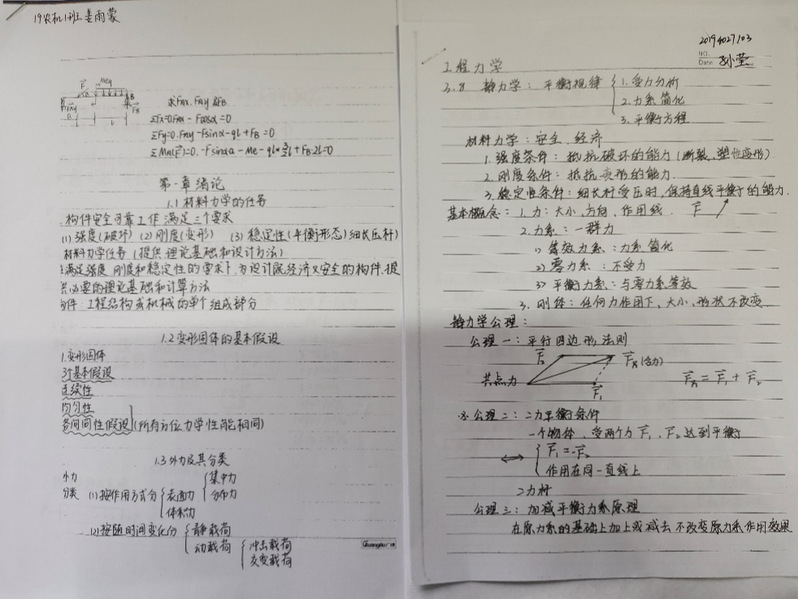 19农机1班 姜雨蒙
求FAx. FAy 及FB
ΣFx=0.FAx - Fcosα=0
ΣFy=0.FAy -Fsinα-ql+FB=0
第一章 绪论
1.1 材料力学的任务
构件安全可靠工作 满足三个需求
(1) 强度(破坏) (2) 刚度(变形) (3) 稳定性(平衡形态)细长压杆)
材料力学任务 (提供 理论基础和设计方法)
满足强度 刚度和稳定性的要求下,为设计既经济又安全的构件,提
供必要的理论基础和计算方法
构件 工程结构或机械的单个组成部分
1.2 变形固体的基本假设
1.变形固体
3个基本假设
连续性
均匀性
各向同性假设 (所有方位力学性能相同)
1.3 外力及其分类
外力
分类 (1)按作用方式分 表面力 集中力 分布力
体积力
(2)按随时间变化分 静载荷
动载荷 冲击载荷
交变载荷
Guangbo
2019402703
NO.
Date 孙莹
工程力学
3.8 静力学: 平衡规律 1.受力分析
2.力系简化
3.平衡方程
材料力学: 安全、经济
1.强度条件: 抵抗破坏的能力(断裂、塑性变形)
2.刚度条件: 抵抗变形的能力.
3.稳定性条件: 细长杆受压时,保持直线平衡的能力.
基本概念: 1.力: 大小、方向、作用线. F
2.力系: 一群力
1) 等效力系: 力系简化
2) 零力系: 不受力
3) 平衡力系: 与零力系等效
3. 刚体: 任何力作用下,大小、形状不改变
静力学公理:
公理一: 平行四边形法则
F₂ FR(合力)
共点力 FR = F₁ + F₂
F₁
公理二: 二力平衡条件
一个物体,受两个力F₁、F₂达到平衡
⟷ F₁=-F₂
作用在同一直线上
二力杆
公理三: 加减平衡力系原理
在原力系的基础上加上或减去 不改变原力系作用效果